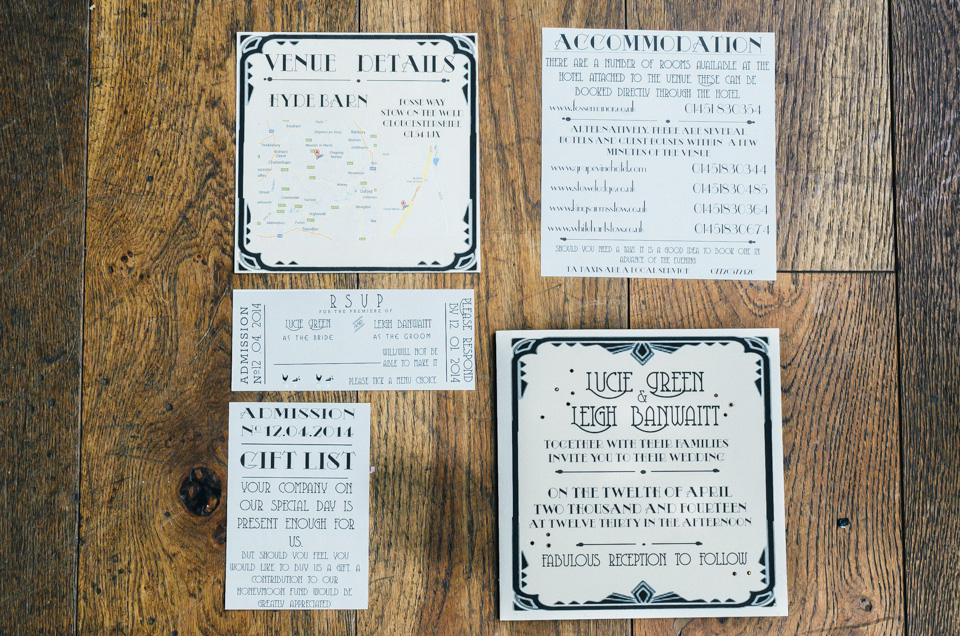 VENUE DETAILS
HYDE BARN
FOSSE WAY
STOW ON THE WOLD
GLOUCESTERSHIRE
GL54 1JX
ACCOMMODATION
THERE ARE A NUMBER OF ROOMS AVAILABLE AT THE
HOTEL ATTACHED TO THE VENUE THESE CAN BE
BOOKED DIRECTLY THROUGH THE HOTEL
www.fossemanor.co.uk 01451 830354
ALTERNATIVELY, THERE ARE SEVERAL
HOTELS AND GUEST HOUSES WITHIN A FEW
MINUTES OF THE VENUE
www.grapevinehotel.com 01451830344
www.stowlodge.co.uk 01451830485
www.kingsarmsstow.co.uk 01451830364
www.whitehartstow.co.uk 01451830674
SHOULD YOU NEED A TAXI IT IS A GOOD IDEA TO BOOK ONE IN
ADVANCE OF THE EVENING
TAXIS ARE A LOCAL SERVICE
ADMISSION
Nº12 04 2014
RSVP
FOR THE PREMIERE OF
LUCIE GREEN AND LEIGH BANWAITT
AS THE BRIDE AS THE GROOM
WILL/WILL NOT BE
ABLE TO MAKE IT
PLEASE TICK A MENU CHOICE
PLEASE RESPOND
BY 12 01 2014
ADMISSION
Nº12.04.2014
GIFT LIST
YOUR COMPANY ON
OUR SPECIAL DAY IS
PRESENT ENOUGH FOR
US.
BUT SHOULD YOU FEEL YOU
WOULD LIKE TO BUY US A GIFT, A
CONTRIBUTION TO OUR
HONEYMOON FUND WOULD BE
GREATLY APPRECIATED
LUCIE GREEN
&
LEIGH BANWAITT
TOGETHER WITH THEIR FAMILIES
INVITE YOU TO THEIR WEDDING
ON THE TWELTH OF APRIL
TWO THOUSAND AND FOURTEEN
AT TWELVE THIRTY IN THE AFTERNOON
FABULOUS RECEPTION TO FOLLOW